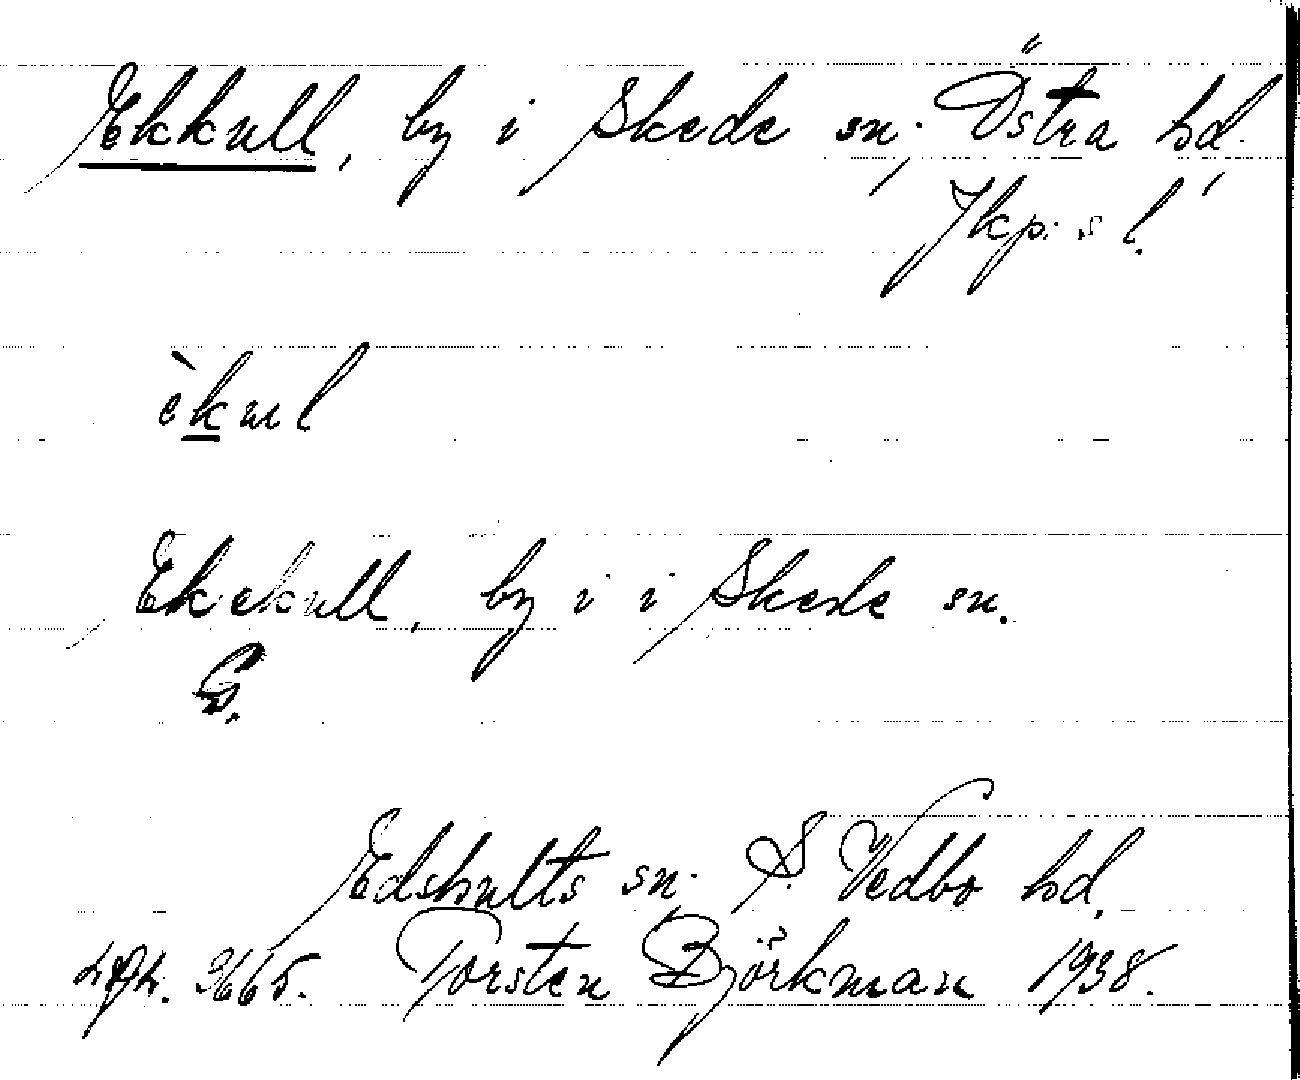 Ekkull, by i Skede sn, Östra hd,
Jkp:s l.
èkul
Ekekull, by i i Skede sn.
G.
Edshults sn, S. Vedbo hd,
3665. Torsten Björkman 1938.